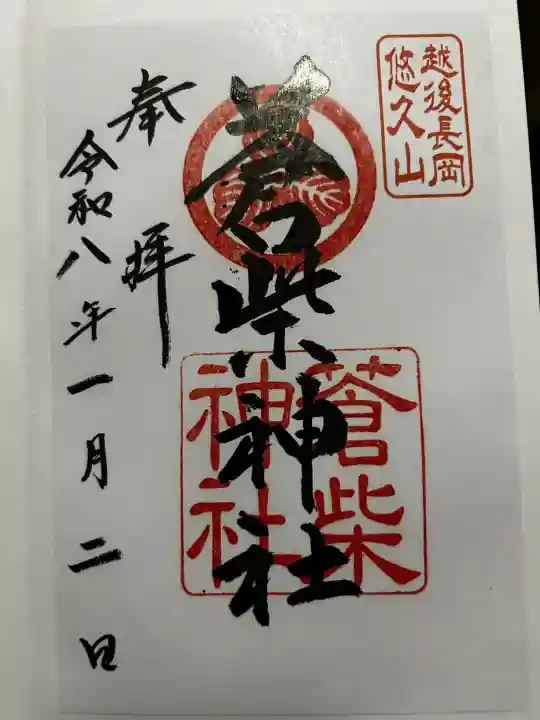 越後長岡
悠久山
蒼柴神社
蒼柴
神社
奉拝
令和八年一月二日